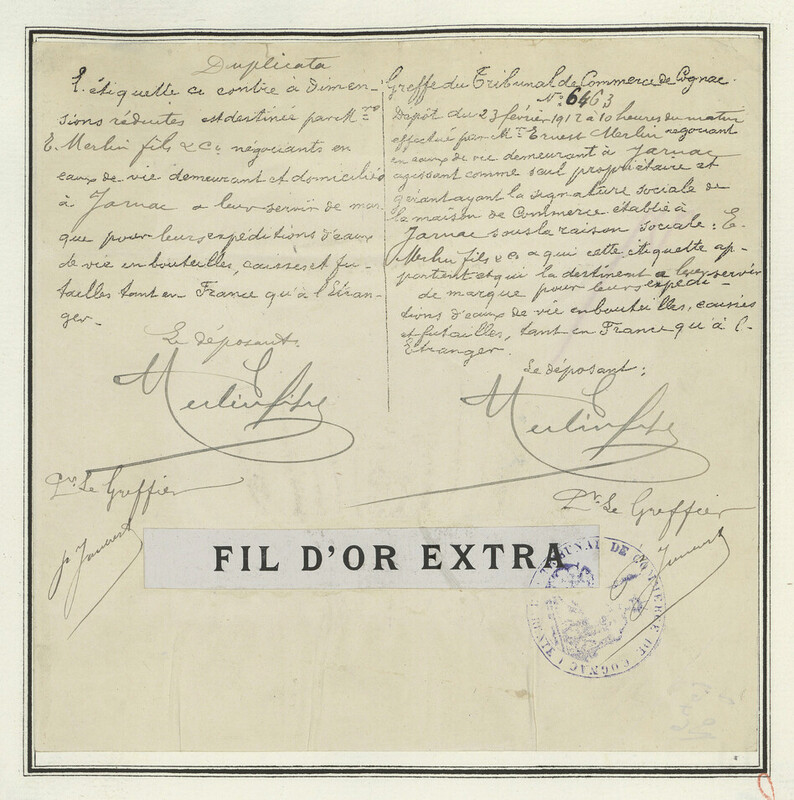 Duplicata
L'étiquette ci contre à dimen-
sions réduites est destinée par Mrs
E. Merlin fils & Co négociants en
eaux de vie demeurant et domiciliés
à Jarnac a leur servir de mar-
que pour leurs expéditions d'eaux
de vie en bouteilles, caisses et fu-
tailles tant en France qu'à l'étran-
ger.
Le déposant.
Merlin fils
Pr. Le Greffier
Greffe du Tribunal de Commerce de Cognac.
No. 6463
Dépôt du 23 février 1912 à 10 heures du matin
effectué par Mr. Ernest Merlin négociant
en eaux de vie demeurant à Jarnac
agissant comme seul propriétaire et
gérant ayant la signature sociale de
la maison de Commerce établie à
Jarnac sous la raison sociale: E.
Merlin fils & Co a qui cette étiquette ap-
partient et qui la destinent a leur servir
de marque pour leurs expédi-
tions d'eaux de vie en bouteilles, caisses
et futailles, tant en France qu'à l'-
Etranger.
Le déposant:
Merlin fils
Pr. Le Greffier
FIL D'OR EXTRA
TRIBUNAL DE COMMERCE DE COGNAC